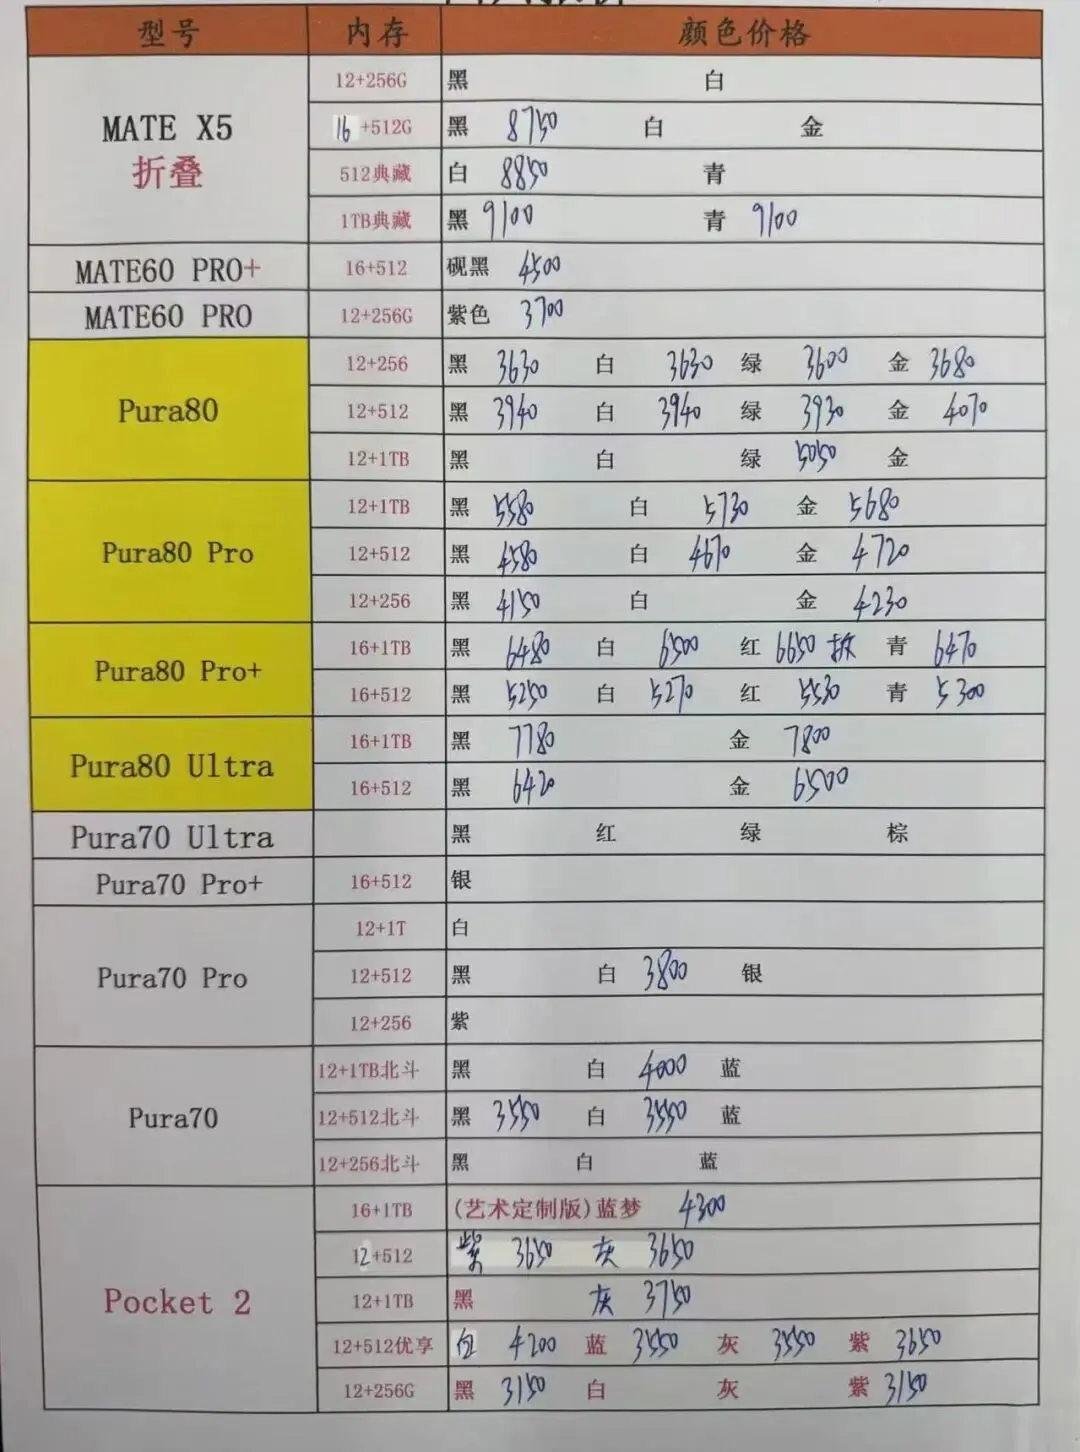 型号 内存 颜色价格
MATE X5 折叠
12+256G 黑 白
16+512G 黑 8750 白 金
512典藏 白 8850 青
1TB典藏 黑 9100 青 9100
MATE60 PRO+ 16+512 砚黑 4500
MATE60 PRO 12+256G 紫色 3700
Pura80
12+256 黑 3630 白 3630 绿 3600 金 3680
12+512 黑 3940 白 3940 绿 3930 金 4070
12+1TB 黑 白 绿 5050 金
Pura80 Pro
12+1TB 黑 5580 白 5730 金 5680
12+512 黑 4580 白 4670 金 4720
12+256 黑 4150 白 金 4230
Pura80 Pro+
16+1TB 黑 6480 白 6500 红 6650 青 6470
16+512 黑 5250 白 5270 红 5530 青 5300
Pura80 Ultra
16+1TB 黑 7780 金 7800
16+512 黑 6420 金 6500
Pura70 Ultra 黑 红 绿 棕
Pura70 Pro+ 16+512 银
Pura70 Pro
12+1T 白
12+512 黑 白 3800 银
12+256 紫
Pura70
12+1TB北斗 黑 白 4000 蓝
12+512北斗 黑 3550 白 3550 蓝
12+256北斗 黑 白 蓝
Pocket 2
16+1TB (艺术定制版)蓝梦 4300
12+512 紫 3650 灰 3650
12+1TB 黑 灰 3750
12+512优享 白 4200 蓝 3550 灰 3550 紫 3650
12+256G 黑 3150 白 灰 紫 3150